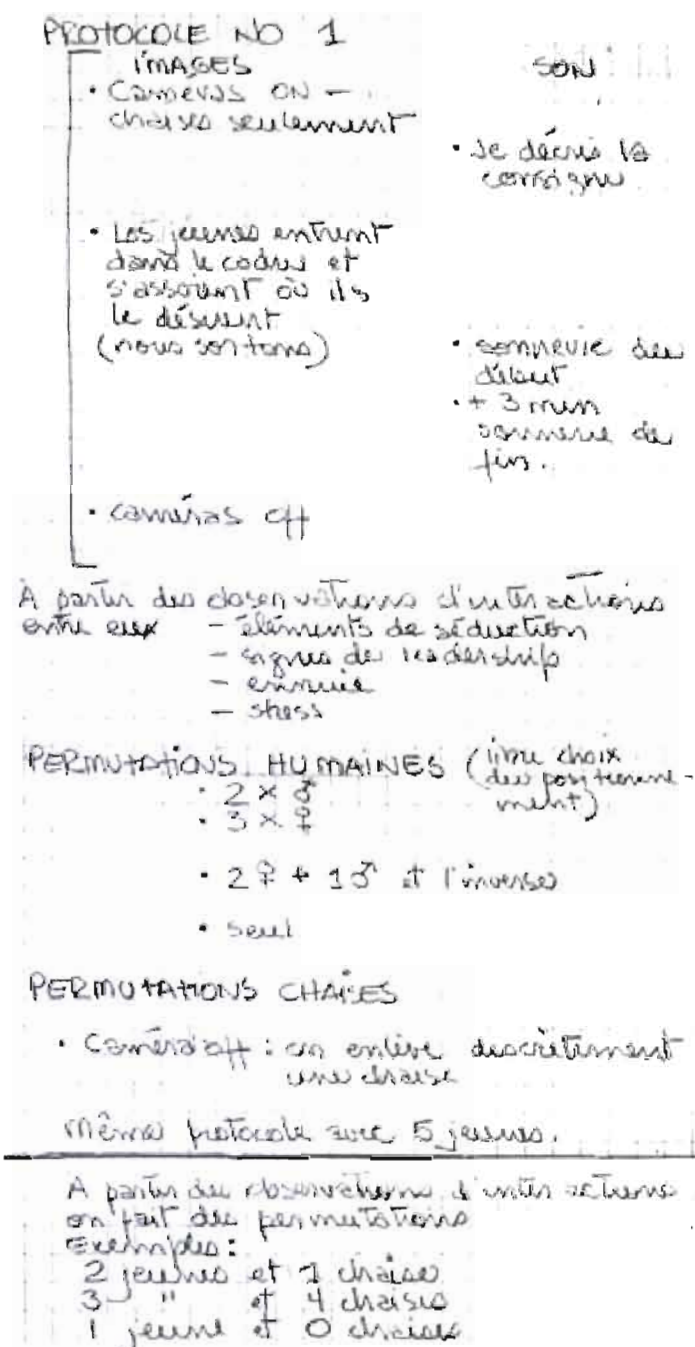 PROTOCOLE NO 1
IMAGES
SON
• Caméras ON –
chaises seulement
• Je décris la
consigne
• Les jeunes entrent
dans le cadre et
s'assoient où ils
le désirent
(nous sortons)
• sonnerie du
début
• + 3 min
sonnerie de
fin.
• caméras off
À partir des observations d'interactions
entre eux – éléments de séduction
– signes de leadership
– ennuie
– stress
PERMUTATIONS HUMAINES (libre choix
du positionne-
ment)
• 2 × ♂
• 3 × ♀
• 2 ♀ + 1 ♂ et l'inverse
• seul
PERMUTATIONS CHAISES
• Caméra off : on enlève discrètement
une chaise
Même protocole avec 5 jeunes.
À partir des observations d'interactions
on fait des permutations
Exemples :
2 jeunes et 1 chaise
3 " et 4 chaises
1 jeune et 0 chaises